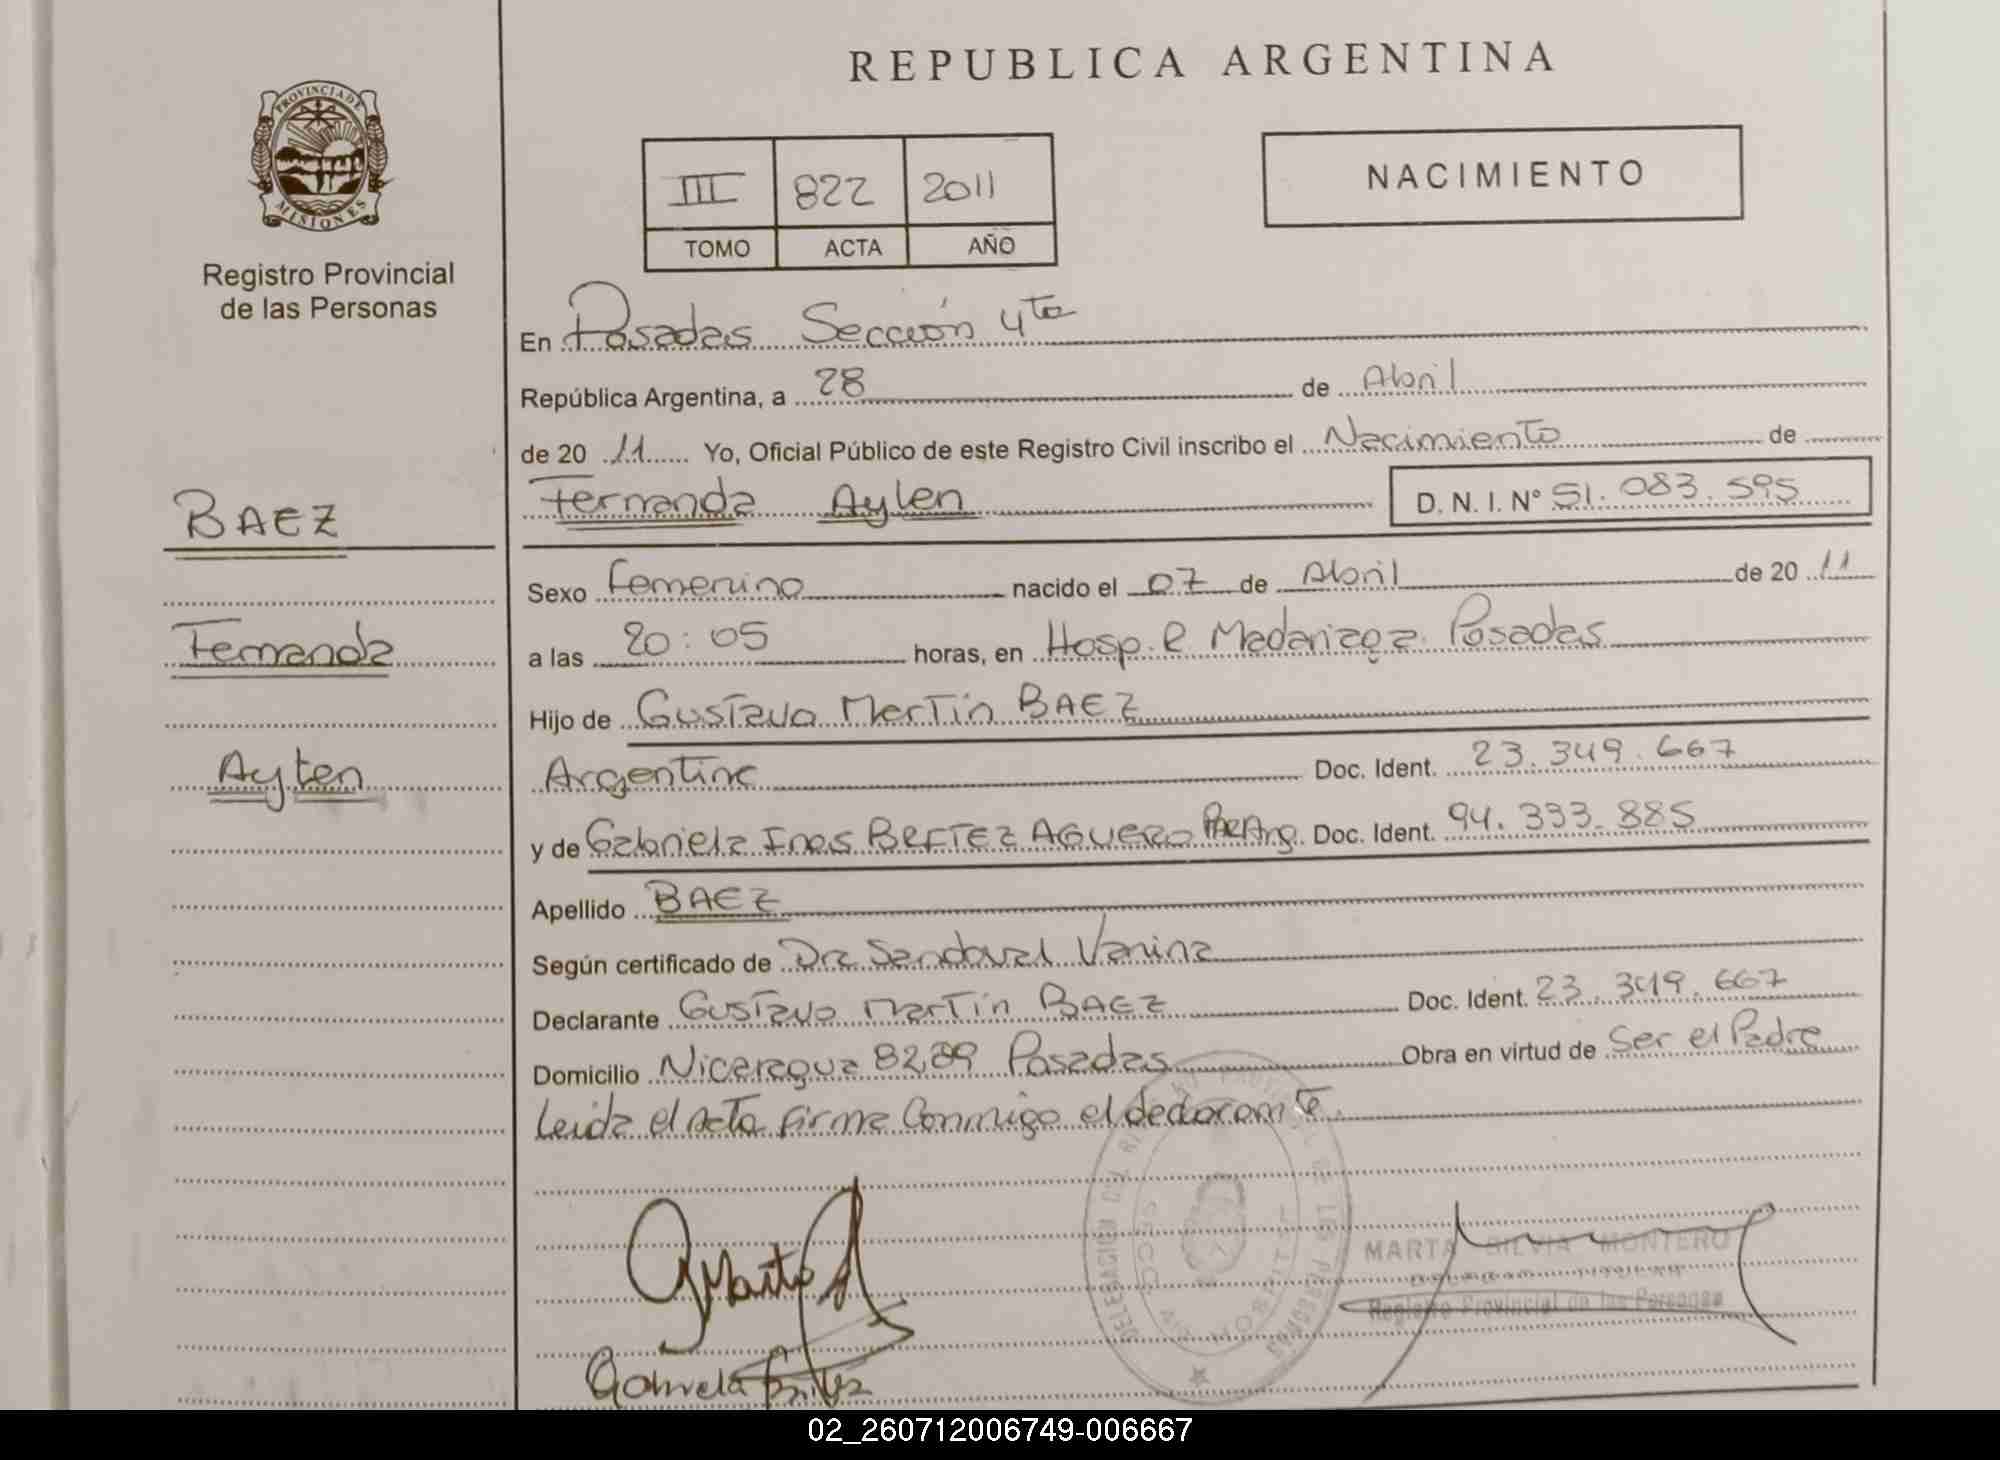 REPUBLICA ARGENTINA
PROVINCIA DE
MISIONES
Registro Provincial
de las Personas
III 822 2011
TOMO ACTA AÑO
NACIMIENTO
En Posadas Sección 4ta
República Argentina, a 28 de Abril
de 20 11 Yo, Oficial Público de este Registro Civil inscribo el Nacimiento de
Fernanda Aylen D. N. I. N° 51.083.595
BAEZ
Fernanda
Aylen
Sexo Femenino nacido el 07 de Abril de 20 11
a las 20:05 horas, en Hosp. R Madariaga. Posadas
Hijo de Gustavo Martin BAEZ
Argentina Doc. Ident. 23.349.667
y de Gabriela Ines AGUERO Doc. Ident. 94.333.885
Apellido BAEZ
Según certificado de Dra Sandoval Vanina
Declarante Gustavo Martin BAEZ Doc. Ident. 23.349.667
Domicilio Nicaragua Posadas Obra en virtud de Ser el Padre
Leida el Acta Firma Conmigo el declarante
MARTA SILVIA MONTERO
Registro Provincial de las Personas
02_260712006749-006667